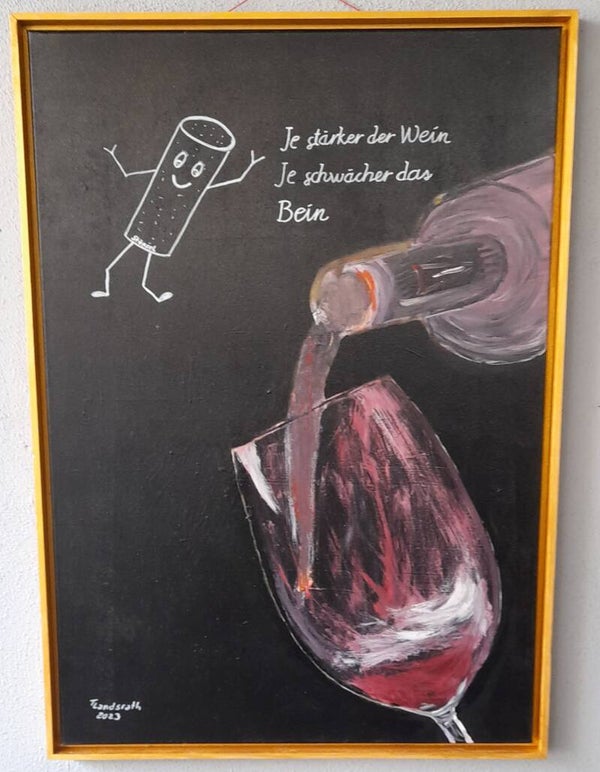 Je stärker der Wein
Je schwächer das
Bein
TLandsrath
2023